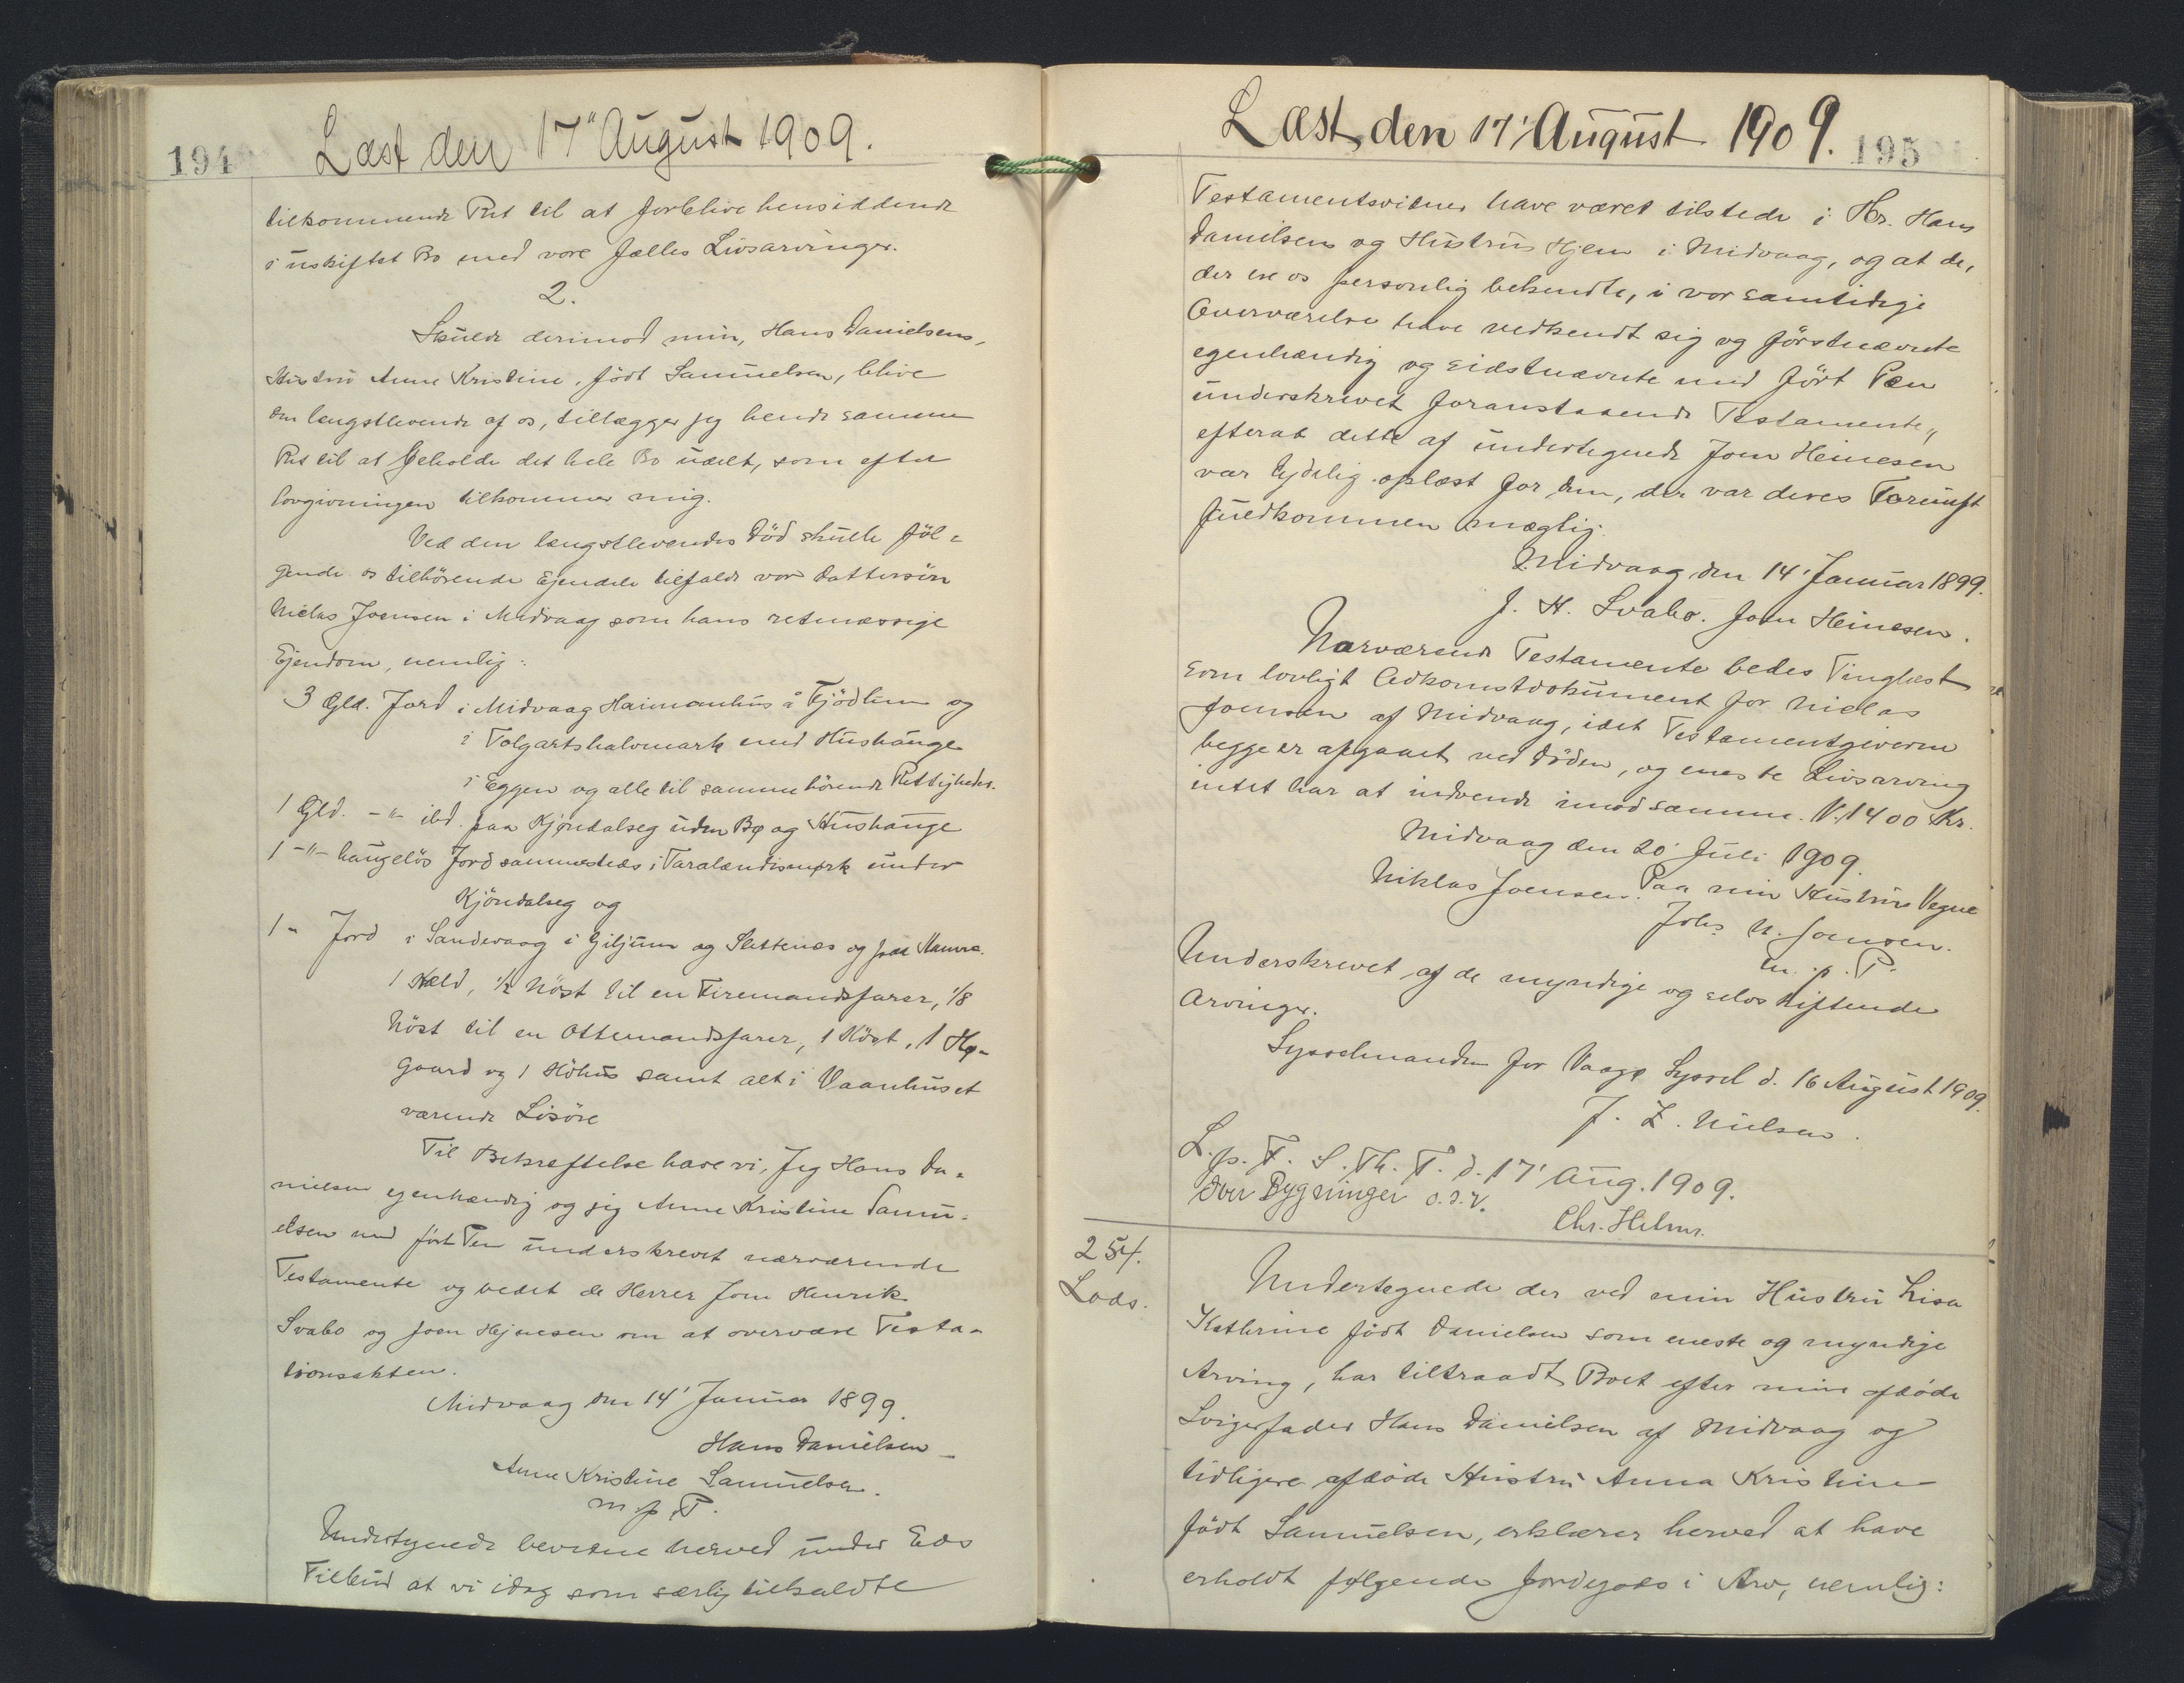 194
Læst den 17" August 1909.
tilkommende Ret til at forblive hensiddende
i uskiftet Bo med vore fælles Livsarvinger.
2.
Skulde derimod min, Hans Danielsens,
Hustru Anne Kristine, født Samuelsen, blive
den længstlevende af os, tillægger jeg hende samme
Ret til at beholde det hele Bo udelt, som efter
lovgivningen tilkommer mig.
Ved den længstlevendes Død skulle føl-
gende os tilhørende Ejendele tilfalde vor Dattersøn
Niclas Joensen i Midvaag som hans retmæssige
Ejendom, nemlig:
3 Gld. Jord i Midvaag Haimanhus å Tjödlum og
i Tolgartshalvmark med Hushauge
i Eggen og alle til samme hörende Rettigheder.
1 Gld. -"- ibd. paa Kjøndalseg uden Bø og Hushauge
1 -"- haugeløs Jord sammesteds i Taralandismørk under
Kjöndalseg og
1 " Jord i Sandevaag i Giljum og Slettenæs og paa Hamre.
1 Hæld, 1/2 Nöst til en Firemandsfarer, 1/8
Nöst til en Ottemandsfarer, 1 Köst, 1 Hø-
gaard og 1 Höhus samt alt i Vaanhuset
værende Lösöre
Til Bekræftelse have vi, Jeg Hans Da-
nielsen egenhændig og jeg Anne Kristine Samu-
elsen med ført Pen underskrevet nærværende
Testamente og bedet de Herrer Joen Henrik
Svabo og Joen Hejnesen om at overvære Testa-
tionsakten.
Midvaag den 14' Januar 1899.
Hans Danielsen
Anne Kristine Samuelsen.
m. f. P.
Undertegnede bevidne herved under Eds
Tilbud at vi idag som særlig tilkaldte
Læst den 17' August 1909.
195
Testamentsvidner have været tilstede i Hr. Hans
Danielsens og Hustrus Hjem i Midvaag, og at de,
der ere os personlig bekendte, i vor samtidige
Overværelse have vedkendt sig og förstnævnte
egenhændig og sidstnævnte med ført Pen
underskrevet foranstaaende Testamente,
efterat dette af undertegnede Joen Heinesen
var tydelig oplæst for dem, der var deres Fornuft
fuldkommen mægtig.
Midvaag, den 14' Januar 1899.
J. H. Svabo. Joen Heinesen.
Nærværende Testamente bedes Tinglæst
som lovligt Adkomstdokument for Niclas
Joensen af Midvaag, idet Testamentgiverne
begge er afgaaet ved Döden, og eneste Livsarving
intet har at indvende imod samme. V. 1400 Kr.
Midvaag den 20' Juli 1909.
Niklas Joensen. Paa min Hustrus Vegne
Johs N. Joensen.
m. p. P.
Underskrevet af de myndige og selvskiftende
Arvinger.
Sysselmanden for Vaagø Syssel d. 16 August 1909.
J. Z. Nielsen.
L. p. F. S. Th. T. d. 17' Aug. 1909.
Over Bygninger o. s. v.
Chr. Helms.
254.
Lods.
Undertegnede der ved min Hustru Lisa
Kathrine födt Danielsen som eneste og myndige
Arving, har tiltraadt Boet efter min afdöde
Svigerfader Hans Danielsen af Midvaag og
tidligere afdöde Hustru Anna Kristine
födt Samuelsen, erklærer herved at have
erholdt følgende Jordegods i Arv, nemlig: